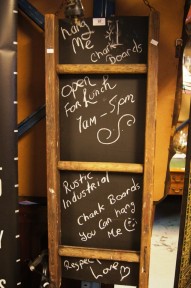 Hang
Me
Chark
Boards
Open
For Lunch
7am - 5pm
Rustic
Industrial
Chark Boards
You Can hang
Me
Respect
Love